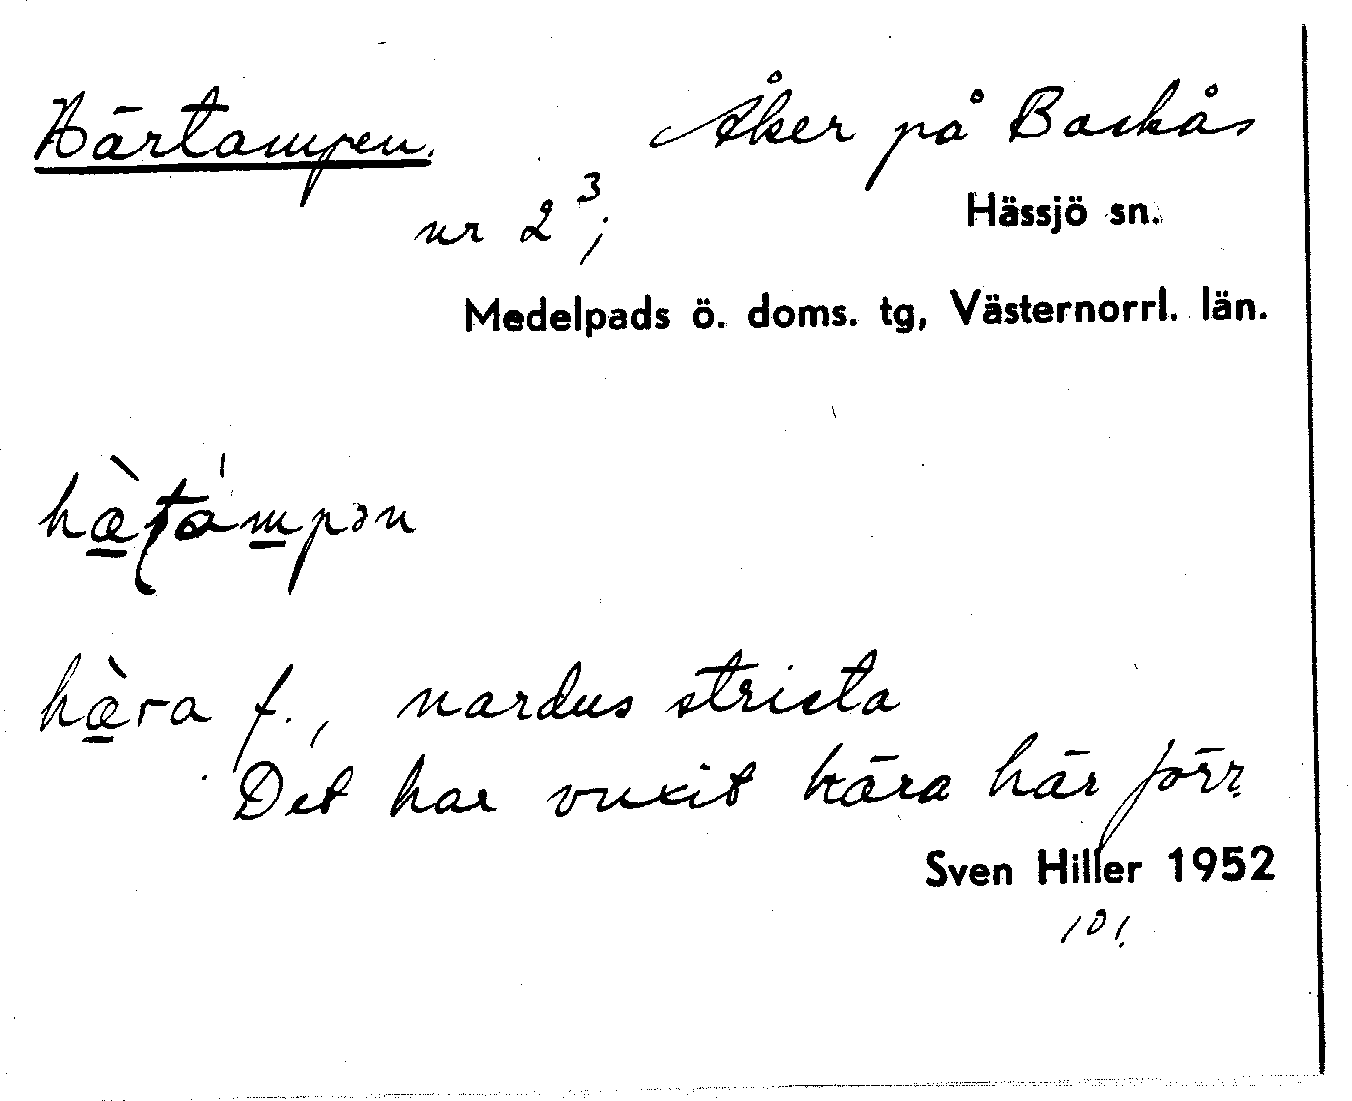 Härtampen. Åker på Backås
nr 2³; Hässjö sn.
Medelpads ö. doms. tg, Västernorrl. län.
hæ̀ʈámpən
hæ̀ra f., nardus stricta
Det har vuxit hära här förr.
Sven Hiller 1952
101.